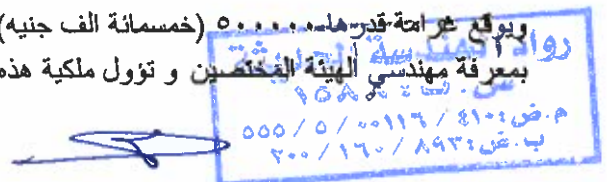 ويوقع غرامة قدرها ٥٠٠٠٠٠ (خمسمائة الف جنيه)
بمعرفة مهندسي الهيئة المختصين و تؤول ملكية هذه
رواد
م.ض: ٤١٠ / ٠٠١١٦ / ٥ / ٥٥٥
ب.ض: ٨٩٣ / ١٦٠ / ٢٠٠